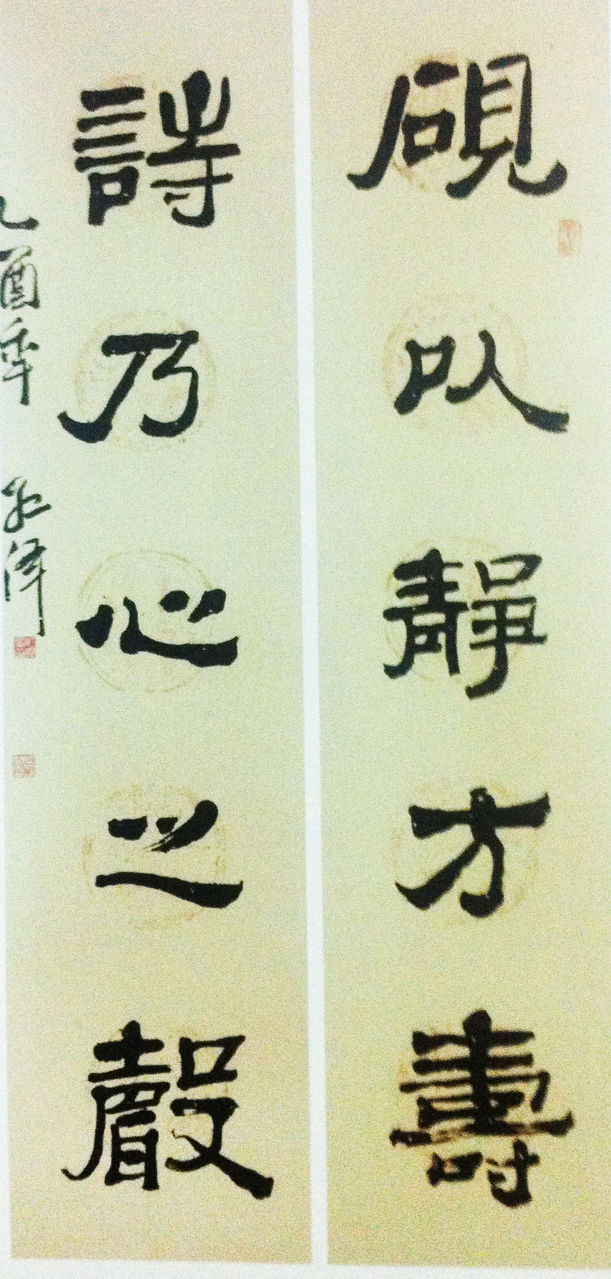 硯以靜方壽
詩乃心之聲
乙酉年